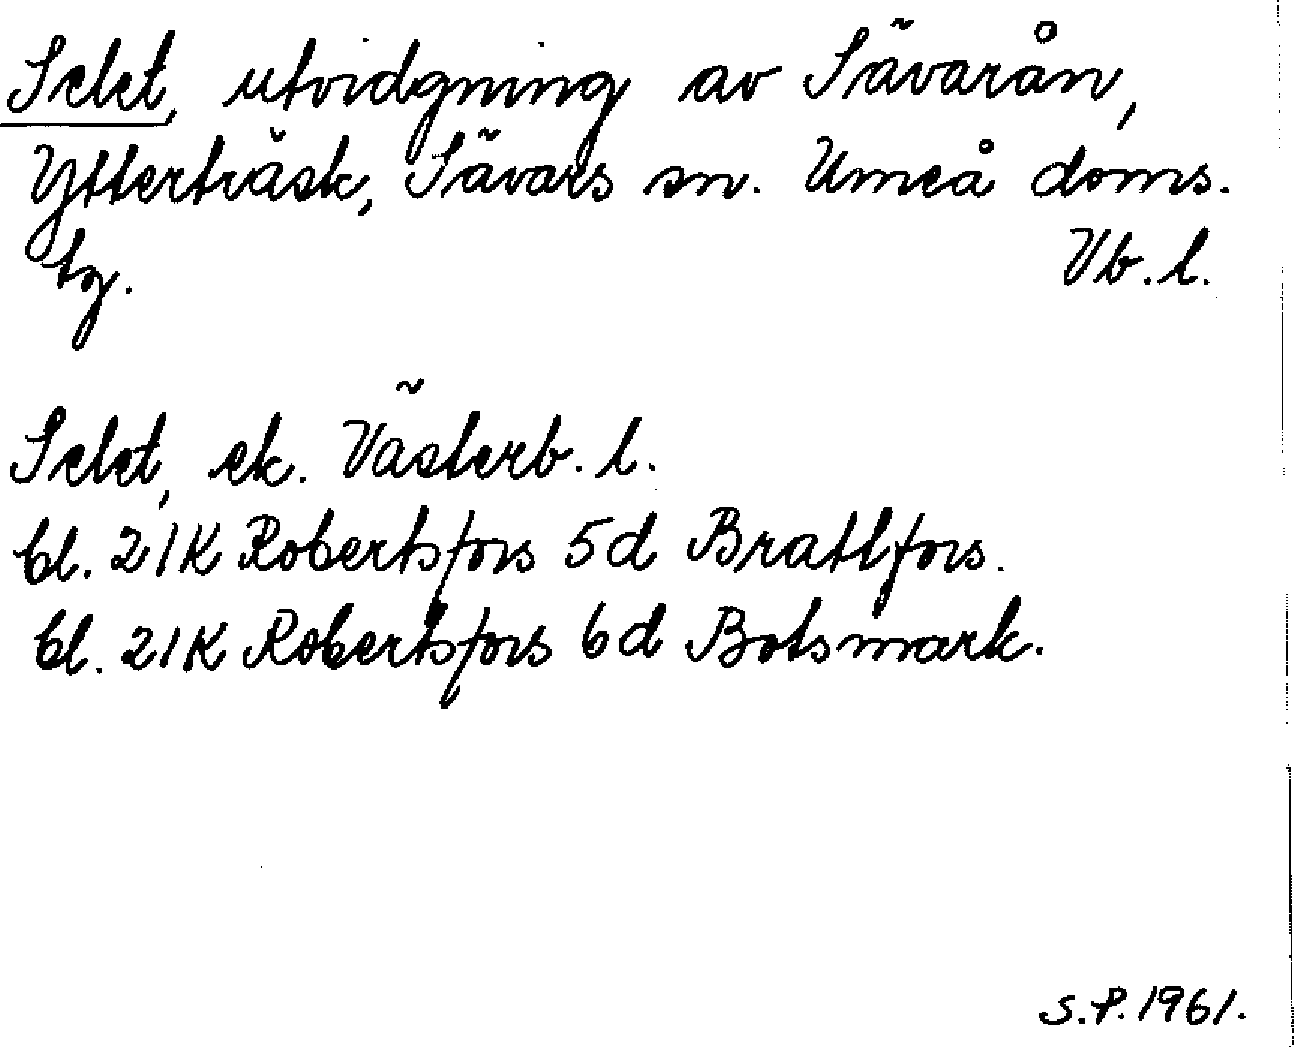 Selet, utvidgning av Sävarån,
Ytterträsk, Sävars sn. Umeå doms.
tg. Vb. l.
Selet, ek. Västerb. l.
bl. 21K Robertsfors 5d Brattfors.
bl. 21K Robertsfors 6d Botsmark.
S.P. 1961.